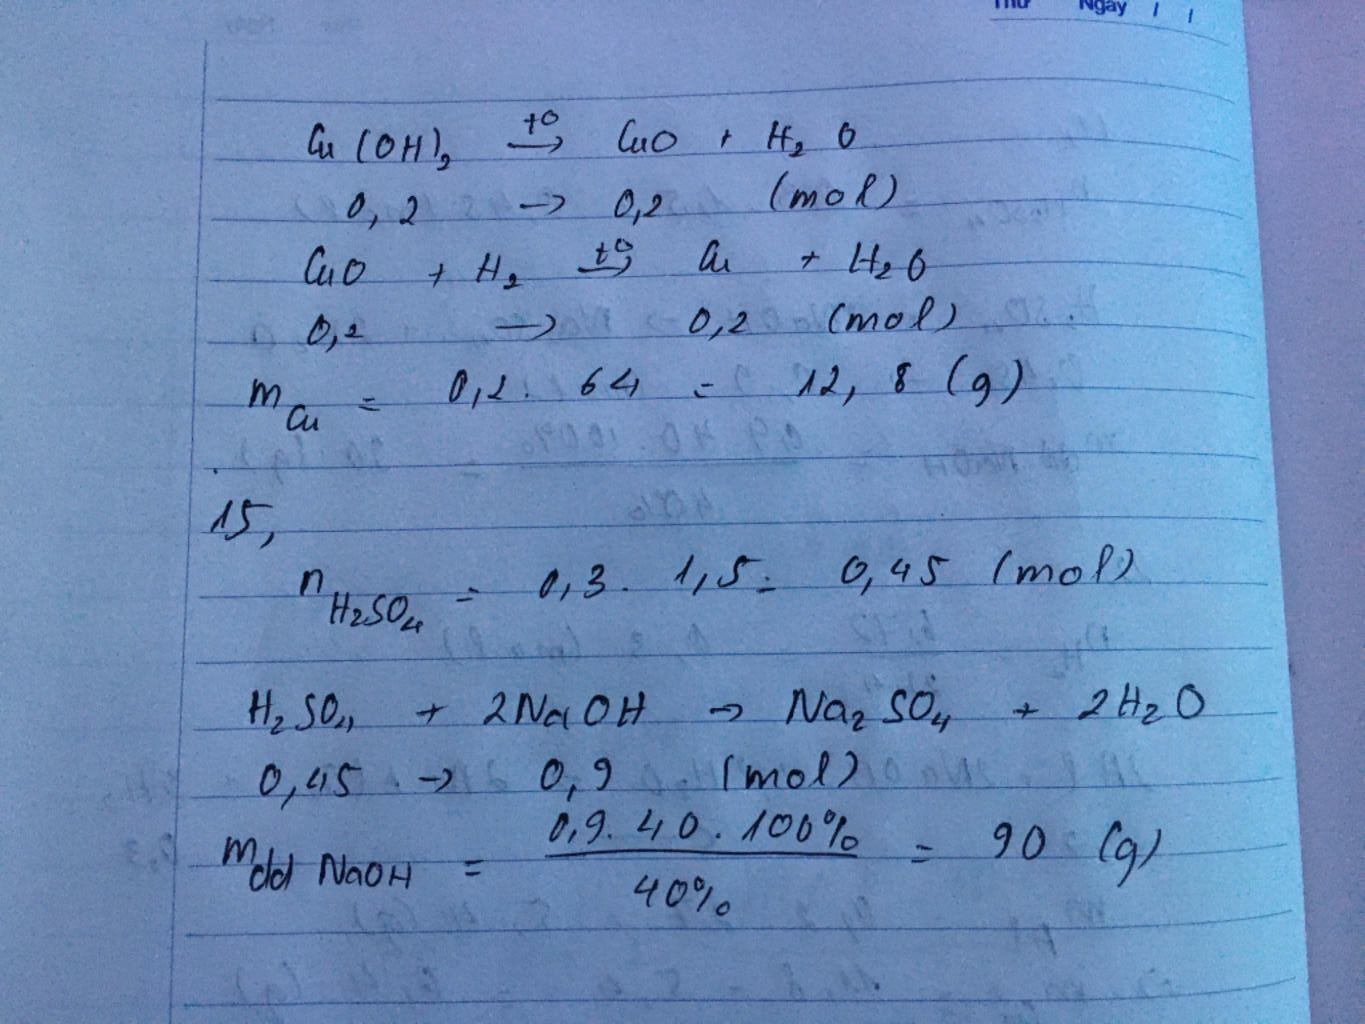 Thứ Ngày / /
Cu(OH)₂ —t⁰→ CuO + H₂O
0,2 → 0,2 (mol)
CuO + H₂ —t⁰→ Cu + H₂O
0,2 → 0,2 (mol)
m_Cu = 0,2 . 64 = 12,8 (g)
15,
n_H₂SO₄ = 0,3 . 1,5 = 0,45 (mol)
H₂SO₄ + 2NaOH → Na₂SO₄ + 2H₂O
0,45 → 0,9 (mol)
m_dd NaOH = 0,9 . 40 . 100% / 40% = 90 (g)